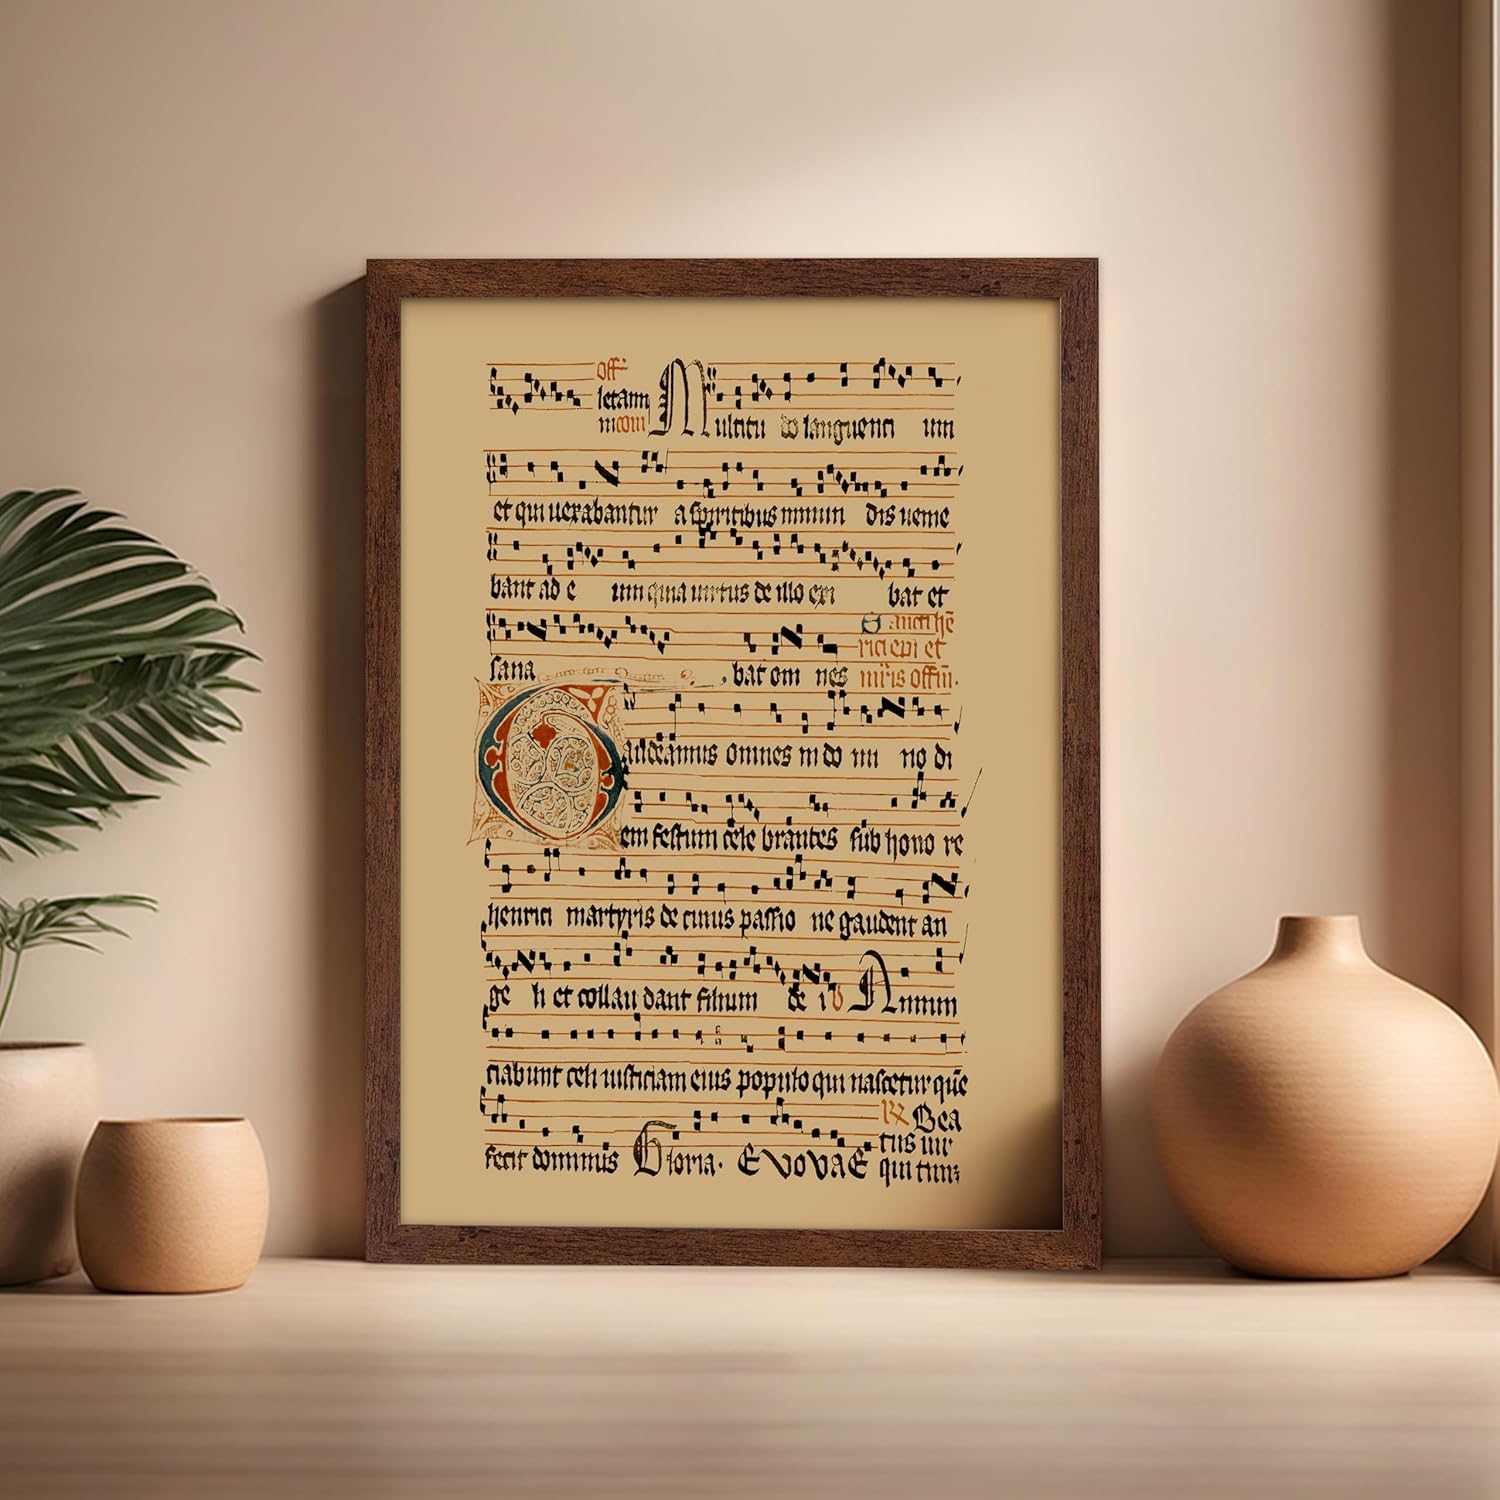 off
letamī
mcom Multitu do languenci um
et qui uexabantur a spiritibus inmun dis ueme
bant ad e um quia uirtus de illo exi bat et
Sancti hē
rici epi et
sana bat om nes mr̄is offm̄.
Gaudeamus omnes in do mi no di
em festum cele brantes sub hono re
henrici martyris de cuius passio ne gaudent an
ge li et collau dant filium de i v Annun
ciabunt celi iusticiam eius populo qui nascetur quē
R Bea
tus uir
fecit dominus Gloria. EVOVAE qui tim;